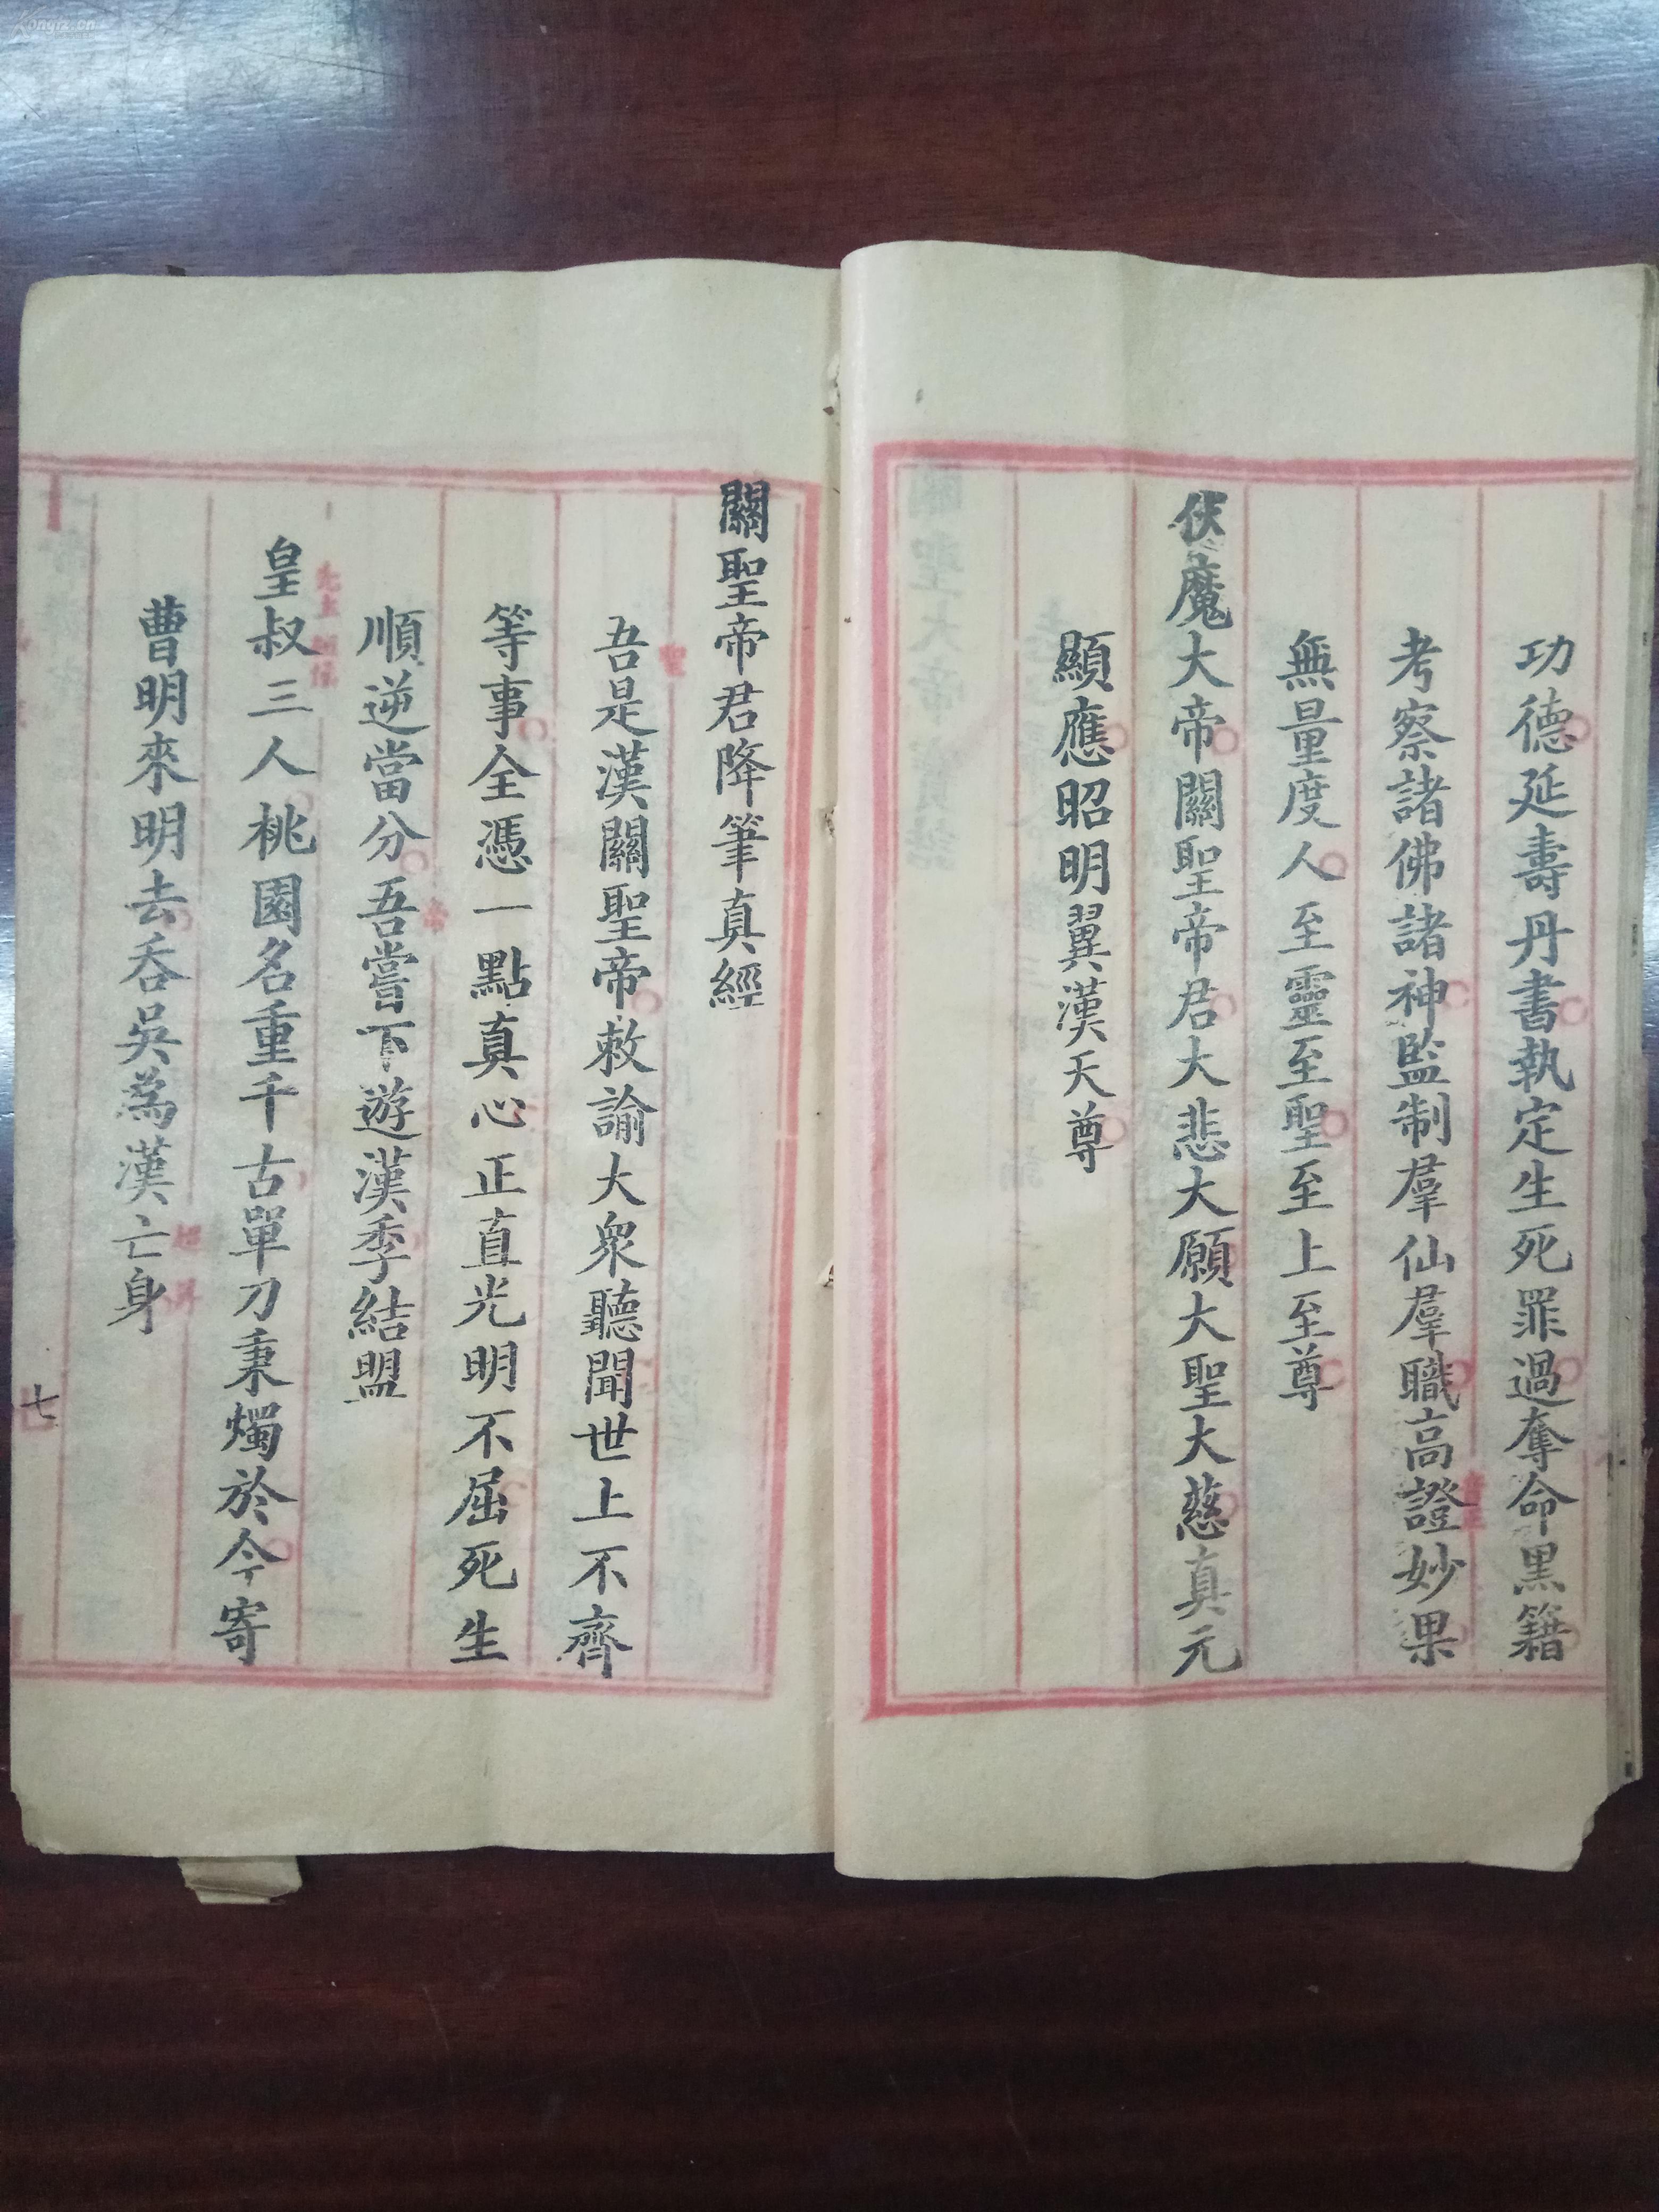 功德延壽丹書執定生死罪過奪命黑籍
考察諸佛諸神監制羣仙羣職高證妙果
無量度人至靈至聖至上至尊
伏魔大帝關聖帝君大悲大願大聖大慈真元
顯應昭明翼漢天尊
關聖帝君降筆真經
吾是漢關聖帝敕諭大衆聽聞世上不齊
等事全憑一點真心正直光明不屈死生
順逆當分吾嘗下遊漢季結盟
皇叔三人桃園名重千古單刀秉燭於今寄
曹明來明去吞吳為漢亡身
七
Kongfz.cn